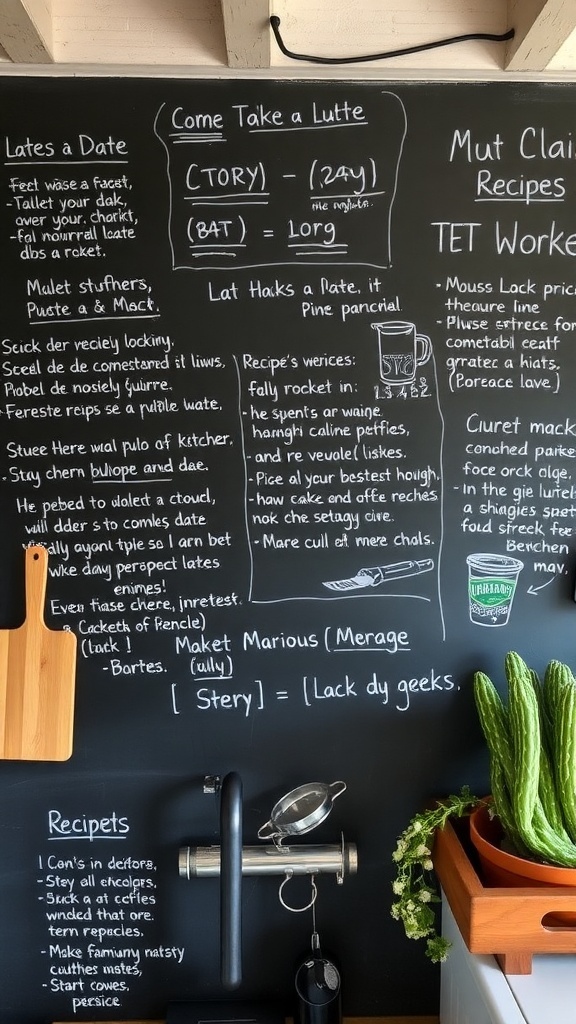 Lates a Date
Feet wase a facet,
-Tallet your dak,
over your charkt,
-fal nourrall loate
dbs a roket.
Mulet stufhers,
Puete a & Mock.
Seick der veciely lockiny.
Sceel de de comestared it liuws,
Piobel de nosiely guivrre.
Fereste reips se a pulile wate,
Stuee Here wual pulo of ketcher.
-Stay chern bulope and dae.
He pebed to wolelt a ctoucl,
will dder s to comles date
ayant tple so I arn bet
wke day peropect lates
enimes!
Even tiase chere, jnretest.
Cacketh of Fencle)
(lack !
-Bartes.
Come Take a Lutte
(TORY) - (24y)
(BAT) = Lorg
Lat Haks a Date, it
Pine pancrial
Recipe's werices:
fally rocket in:
-he spents ar waine
hanghi caline petfies,
-and re vevole( liskes.
-Pice al your bestest hough,
-haw cake end offe reches
nok che setagy cive.
- Mare cull at mere chals.
Maket Marious (Merage
(ully)
[ Stery] = [Lack dy geeks.
Mut Clai
Recipes
TET Worke
- Mouss Lack pric
theaure line
- Pluse
cometabll ceatt
grratec a hiats.
(Poreace lave)
Ciuret mack
conohed parke
foce orck olge.
- In the gie lurtel
a shingies spet
fould streek fee
Berichen
mav,
Recipets
I Can's in defors,
-Stey all
-Suck a at ccfles
wnded that ore.
tern repecles.
- Make famiuny natsty
cuithes mates,
- Start cowes,
persice